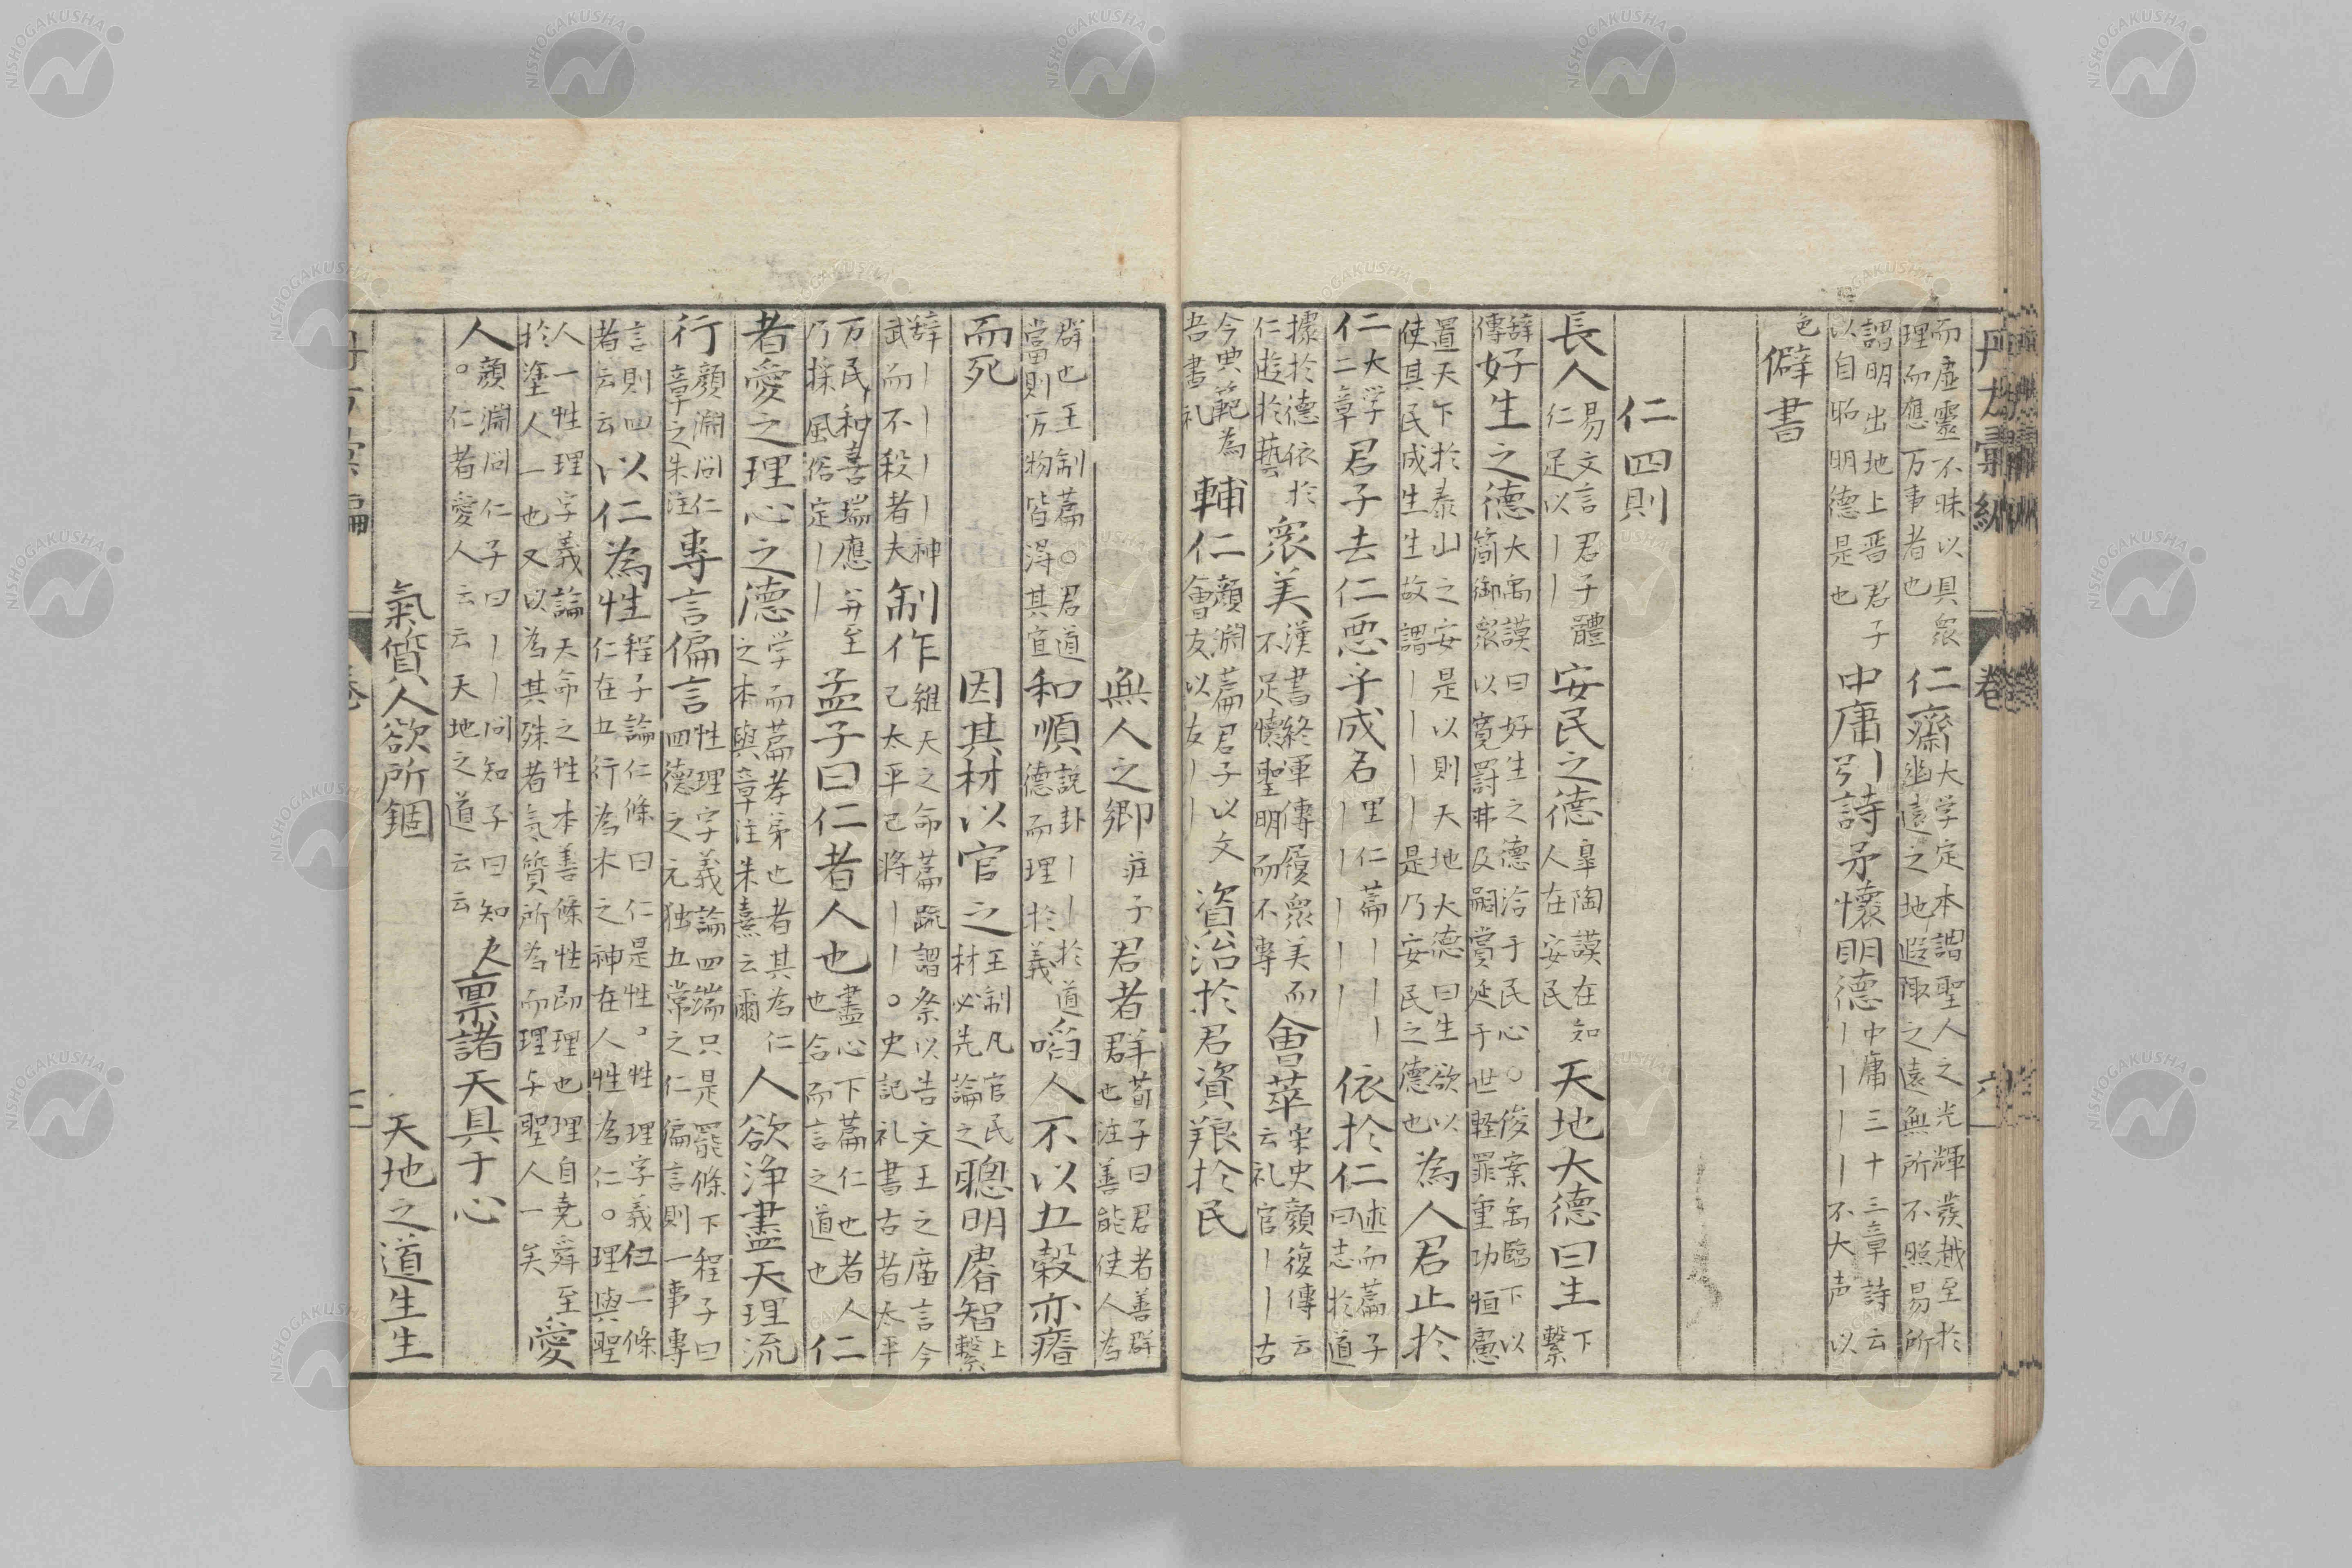 而虛霊不昧以具衆
理而應万事者也
仁齋
大学定本謂聖人之光輝發越至於
幽遠之地遐陬之遠無所不照易所
謂明出地上晋君子
以自昭明德是也
中庸引詩予懷明德
中庸三十三章詩云
丨丨丨丨不大声以
色
僻書
仁四則
長人
易文言君子體
仁足以丨丨
安民之德
皐陶謨在知
人在安民
天地大德曰生
下
繫
辞
傳
好生之德
大禹謨曰好生之德洽于民心○俊案禹臨下以
簡御衆以寬罰弗及嗣賞延于世軽罪重功恤憲
置天下於泰山之安是以則天地大德曰生欲以
使其民成生生故謂丨丨丨丨是乃安民之德也
為人君止於
仁
大学
二章
君子去仁悪乎成名
里仁萹丨丨丨
丨丨丨丨丨
依於仁
述而萹子
曰志於道
據於德依於
仁遊於藝
衆美
漢書終軍傳履衆美而
不足懐聖明而不專
會萃
宋史顔復傳云
云礼官丨丨古
今典範為
吾書礼
輔仁
顔淵萹君子以文
會友以友丨丨
資治於君資粮於民
無人之鄉
荘子
君者群
荀子曰君者善群
也注善能使人為
群也王制萹○君道
當則万物皆得其宜
和順
説卦丨丨於道
德而理於義
啗人不以五穀亦瘖
而死
因其材以官之
王制凡官民
材必先論之
聰明睿智
上
繫
辞丨丨丨丨神
武而不殺者夫
制作
維天之命萹疏謂祭以告文王之廣言今
已太平已將丨丨○史記礼書古者太平
万民和喜瑞應弁至
乃採風俗定丨丨
孟子曰仁者人也
盡心下萹仁也者人
也合而言之道也
仁
者愛之理心之德
学而萹孝弟也者其為仁
之本與章注朱熹云爾
人欲浄盡天理流
行
顔淵问仁
章之朱注
專言偏言
性理字義論四端只是罷條下程子曰
四德之元独五常之仁偏言則一事專
言則四
者云云
以仁為性
程子論仁條曰仁是性○性理字義仁一條
仁在五行為木之神在人性為仁○理與聖
人一性理字義論天命之性本善條性即理也理自尭舜至
於塗人一也又以為其殊者氣質所為而理与聖人一矣
愛
人
○顔淵问仁子曰丨丨问知子曰知人
仁者愛人云云天地之道云云
稟諸天具于心
氣質人欲所錮
天地之道生生